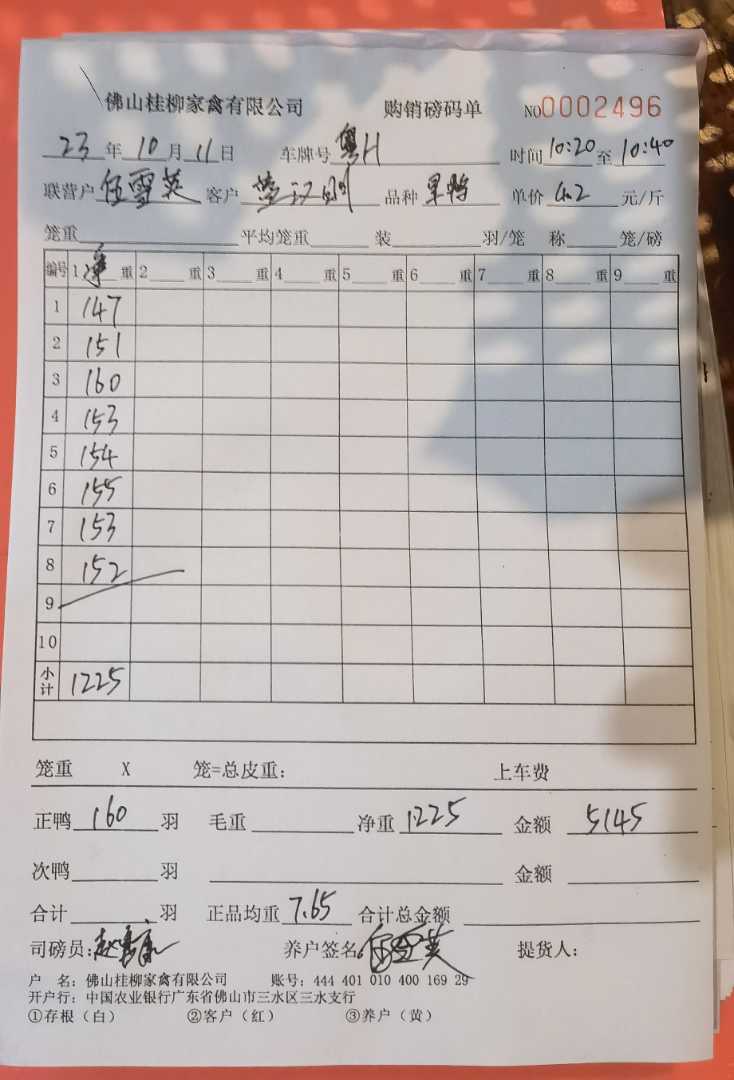 佛山桂柳家禽有限公司 购销磅码单 NO0002496
23年10月11日 车牌号粤H 时间10:20至10:40
联营户伍雪英 客户 品种 单价4.2元/斤
笼重 平均笼重 装 羽/笼 称 笼/磅
编号 1 净重 2 重 3 重 4 重 5 重 6 重 7 重 8 重 9 重
1 147
2 151
3 160
4 153
5 154
6 155
7 153
8 152
9
10
小计 1225
笼重 X 笼=总皮重： 上车费
正鸭160羽 毛重 净重1225 金额5145
次鸭 羽 金额
合计 羽 正品均重7.65 合计总金额
司磅员: 养户签名:伍雪英 提货人:
户 名：佛山桂柳家禽有限公司 账号：444 401 010 400 169 29
开户行：中国农业银行广东省佛山市三水区三水支行
①存根（白） ②客户（红） ③养户（黄）